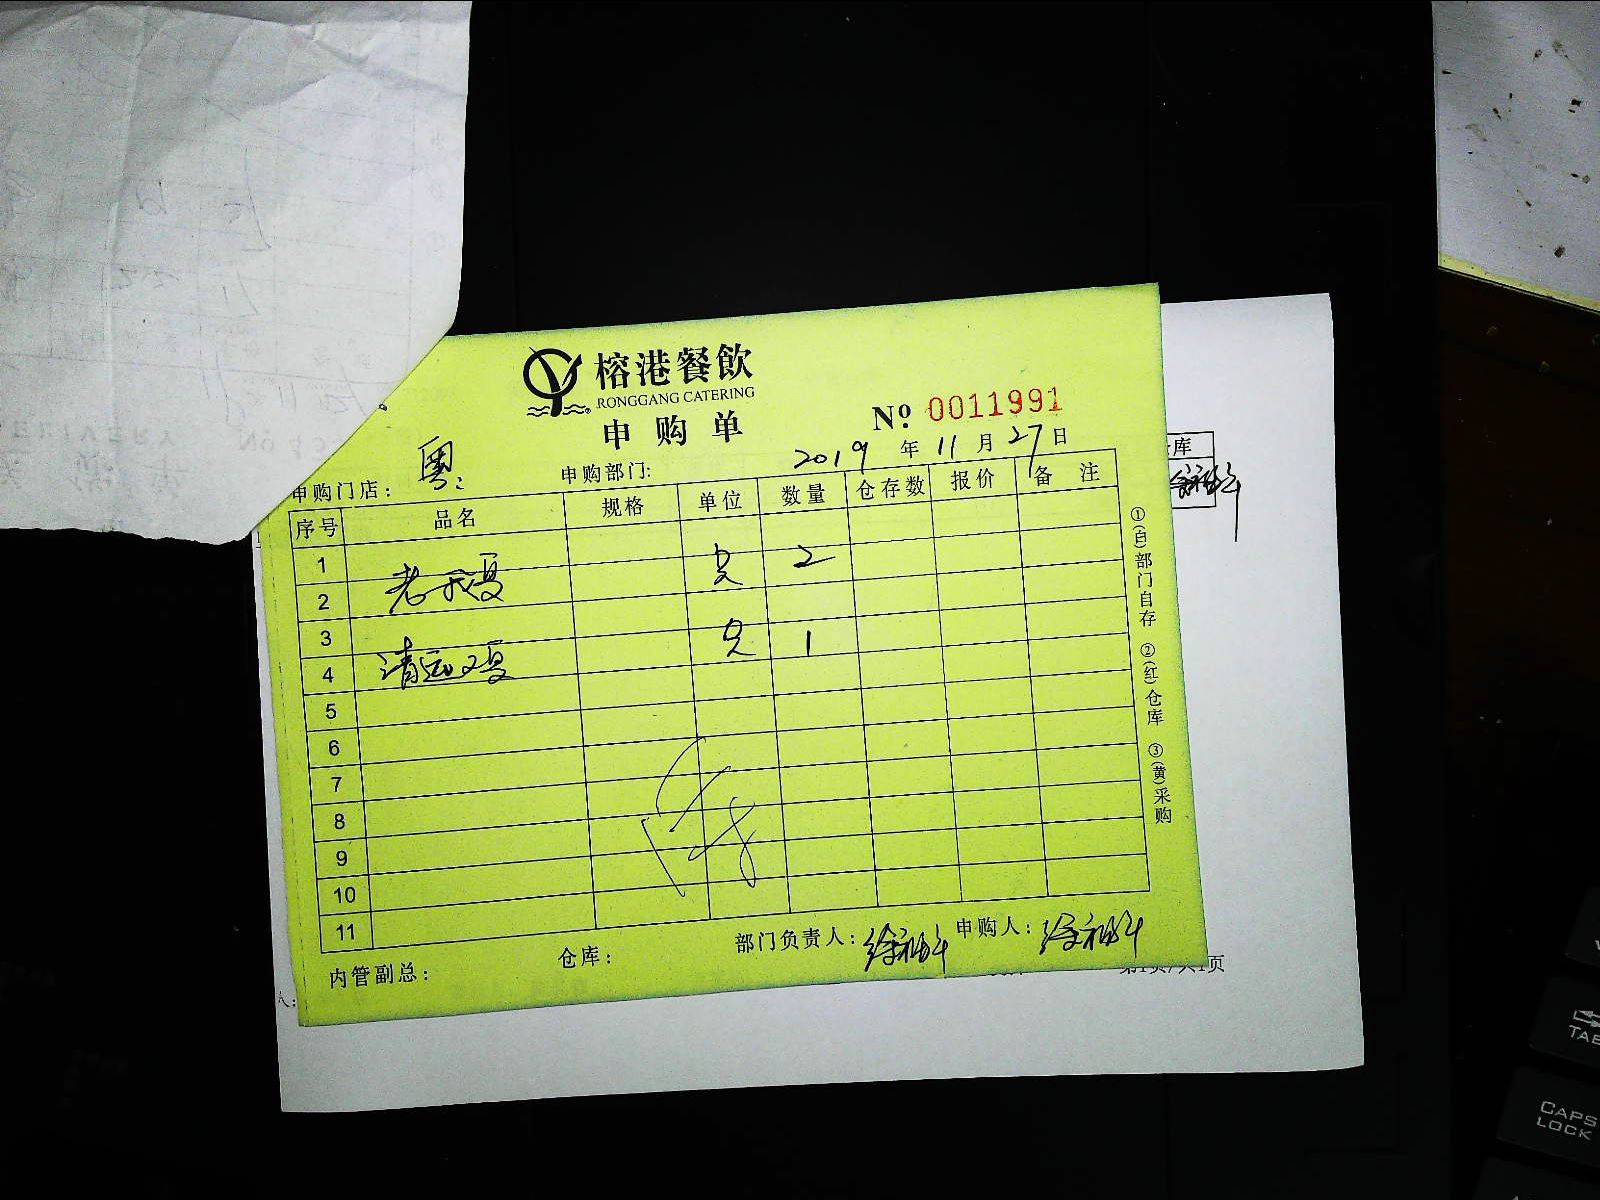 榕港餐飲
RONGGANG CATERING
申购单
№ 0011991
申购门店: 粤
申购部门:
2019年11月27日
序号 品名 规格 单位 数量 仓存数 报价 备注
1
2 老 只 2
3
4 清远鸡 只 1
5
6
7
8
9
10
11
内管副总:
仓库:
部门负责人: 徐
申购人: 徐
①(白)部门自存 ②(红)仓库 ③(黄)采购
库
第1页/共1页
TAB
CAPS
LOCK